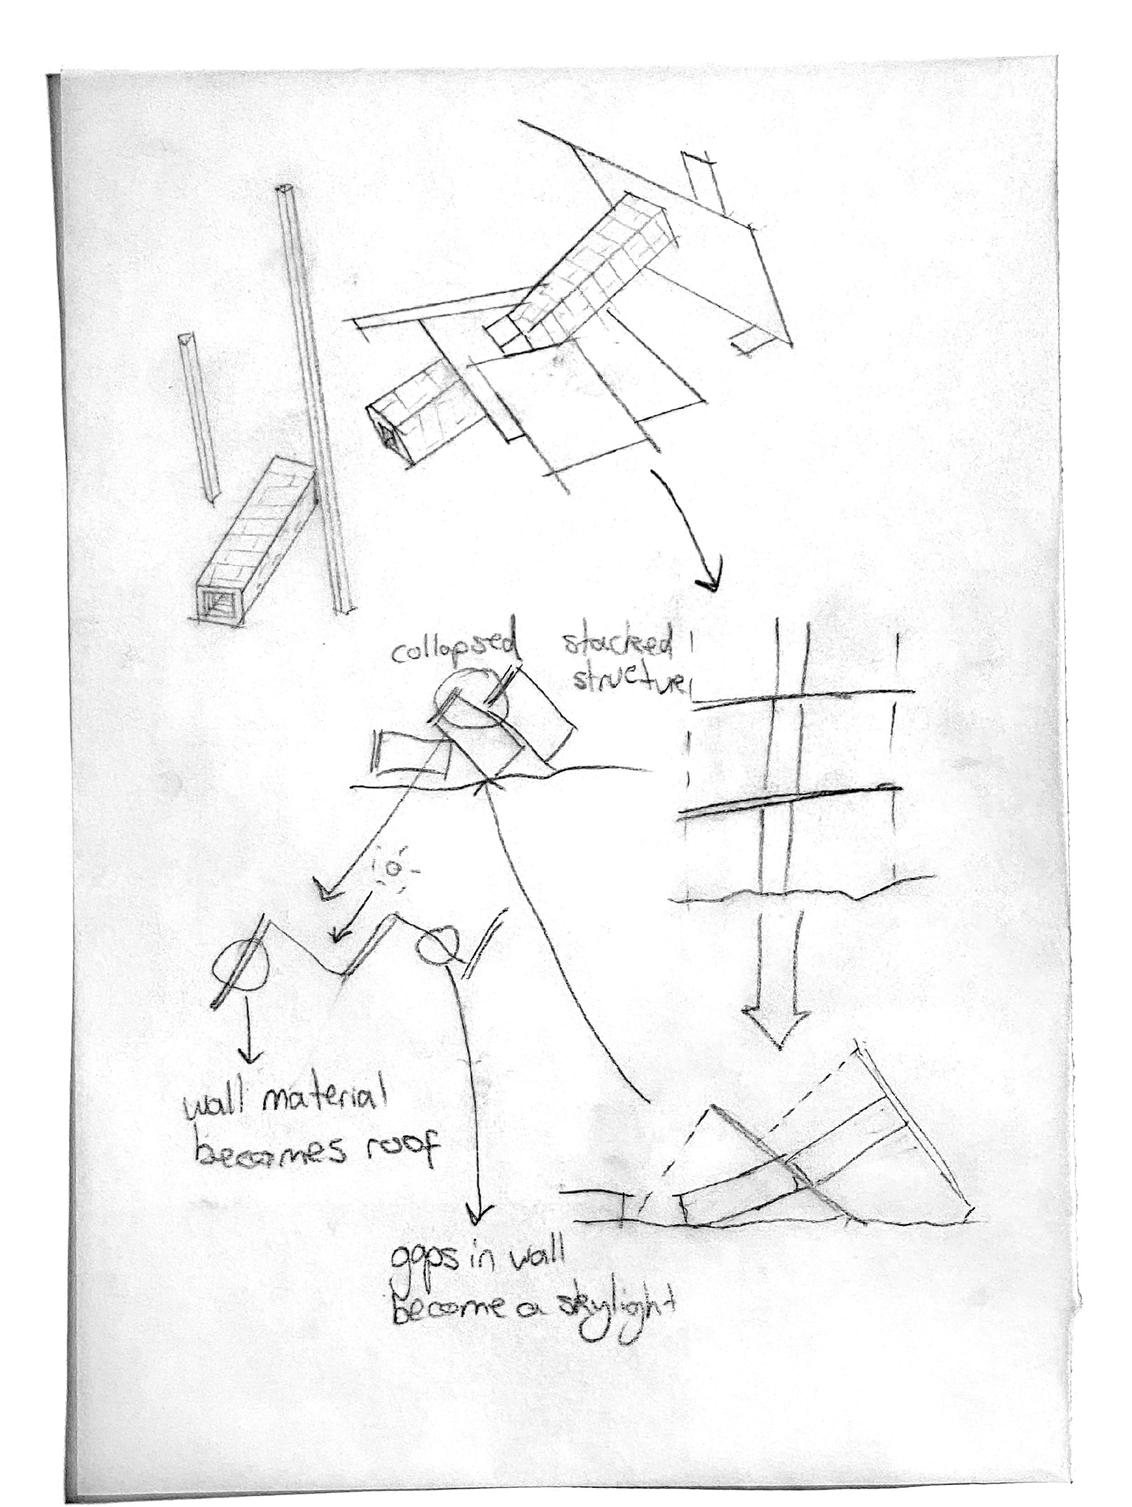 collapsed
stacked
structure
wall material
becomes roof
gaps in wall
become a skylight